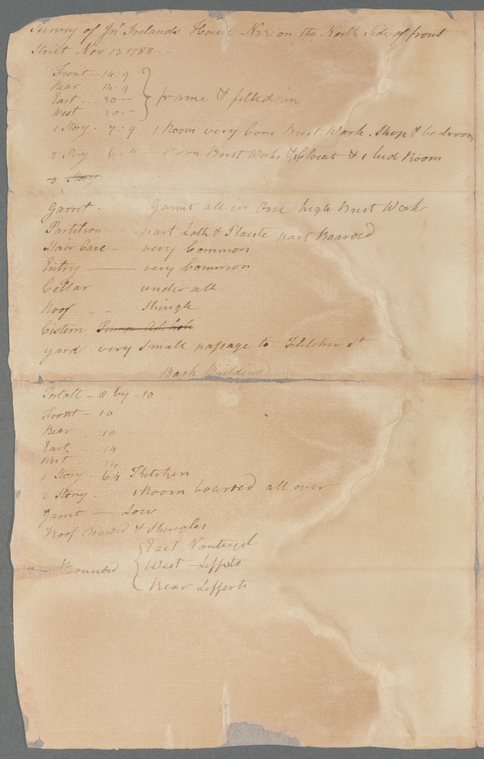 Survey of Jnº Irelands House Nº on the North Side of front
Street Nov 13 1788
Front - 14.9
Rear 14.9
East 30 -
West 30 -
frame & filled in
1 Story - 7.9 1 Room very Com Brest Work Shop & bedroom
2 Story 6. Room Brest Work & Closet & 1 bed Room
3 Story
Garret - Garret all in One high Brest Work
Partition part Lath & Plaister part Boarded
Stair Case - very Common
Entry very Common
Cellar under all
Roof - Shingle
Cistern
yard very Small passage to Fletcher st
Back Building
8 by 10
Front - 10
Rear 10
East 14
West 14
1 Story - 6.4 Kitchen
2 Story - 1 Room boarded all over
Garret - Low
Roof Boarded & Shingles
Bounded
East
West - Lefferts
Rear Lefferts